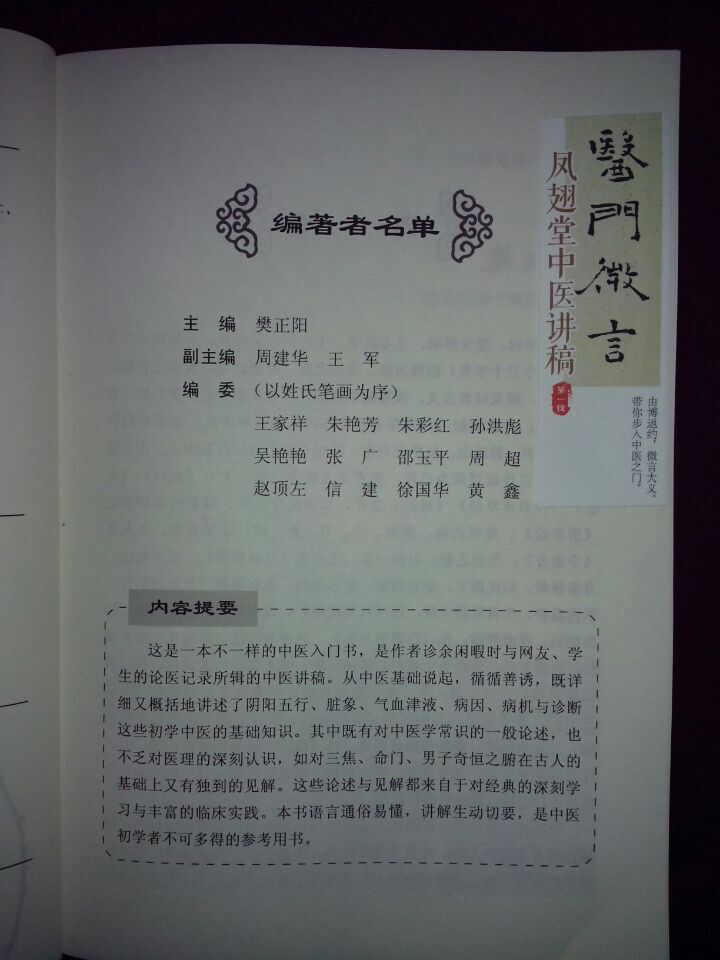 编著者名单
主 编 樊正阳
副主编 周建华 王 军
编 委 （以姓氏笔画为序）
王家祥 朱艳芳 朱彩红 孙洪彪
吴艳艳 张 广 邵玉平 周 超
赵顶左 信 建 徐国华 黄 鑫
醫門微言
凤翅堂中医讲稿
第一辑
由博返约，微言大义。
带你步入中医之门。
内容提要
这是一本不一样的中医入门书，是作者诊余闲暇时与网友、学
生的论医记录所辑的中医讲稿。从中医基础说起，循循善诱，既详
细又概括地讲述了阴阳五行、脏象、气血津液、病因、病机与诊断
这些初学中医的基础知识。其中既有对中医学常识的一般论述，也
不乏对医理的深刻认识，如对三焦、命门、男子奇恒之腑在古人的
基础上又有独到的见解。这些论述与见解都来自于对经典的深刻学
习与丰富的临床实践。本书语言通俗易懂，讲解生动切要，是中医
初学者不可多得的参考用书。